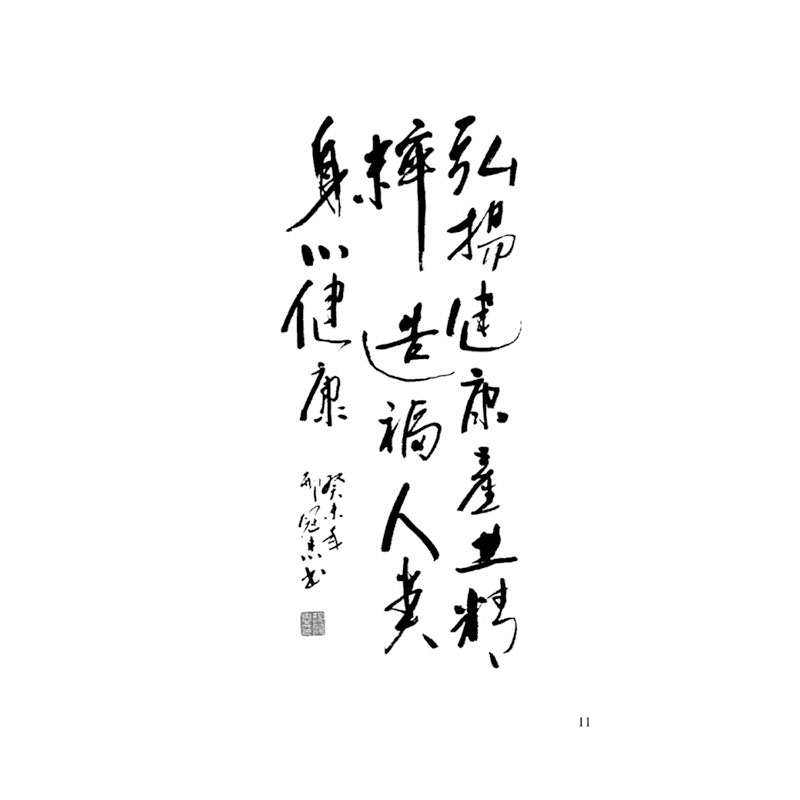 弘揚健康產业精
粹造福人类
身心健康
癸未年
邢冠杰书
11